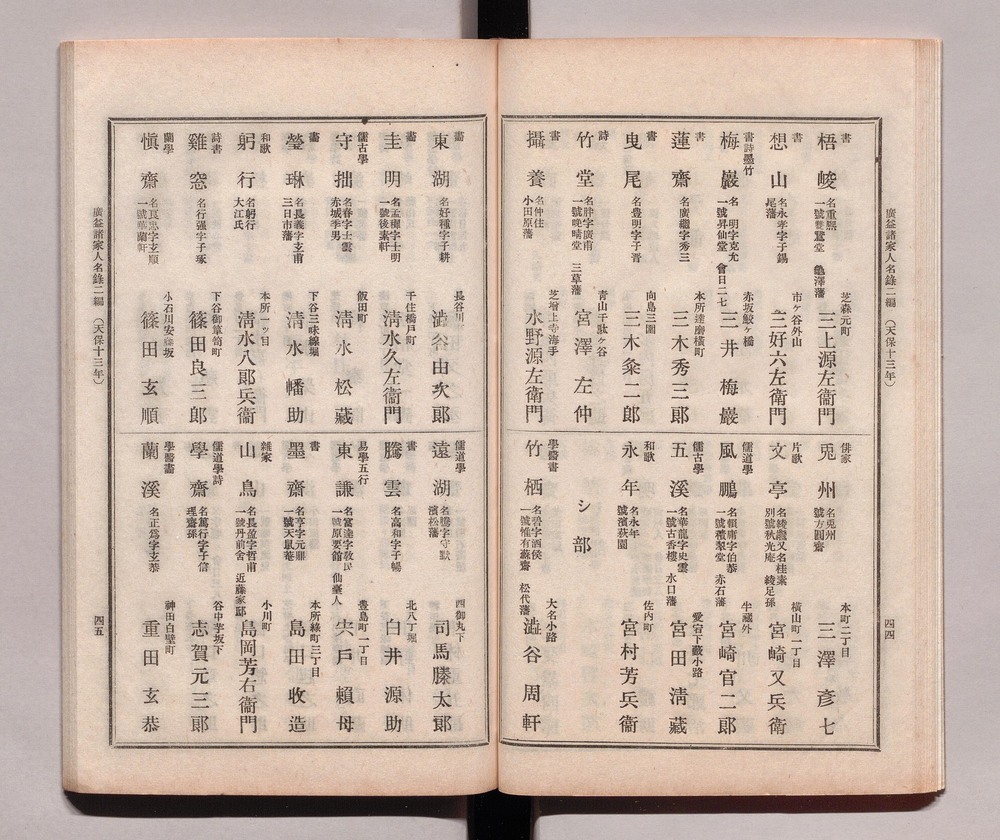 廣益諸家人名錄二編　（天保十三年）
四四
書　梧峻　名重熙　一號雙鷲堂　龜澤藩　芝森元町　三上源左衛門
書　想山　名永孝字子錫　尾藩　市ヶ谷外山　三好六左衛門
書詩墨竹　梅巖　名　明字克允　一號昇仙堂　會日二七　赤坂鮫ヶ橋　三井梅巖
書　蓮齋　名廣繼字秀三　本所達磨横町　三木秀三郎
書　曳尾　名豊明字子晋　向島三圍　三木粂二郎
詩　竹堂　名胖字廣甫　一號晚晴堂　三草藩　青山千駄ヶ谷　宮澤左仲
書　攝養　名仲住　小田原藩　芝增上寺海手　水野源左衛門
俳家　兎州　名兎州　號方圓齋　本町二丁目　三澤彦七
片歌　文亭　名綾龍又名桂素　別號秋光庵　綾足孫　橫山町一丁目　宮崎又兵衛
儒道學　風鵬　名領甫字伯恭　一號積翠堂　赤石藩　半藏外　宮崎官二郎
儒古學　五溪　名華龍字史雲　一號古香樓　水口藩　愛宕下藪小路　宮田淸藏
和歌　永年　名永年　號濱荻園　佐内町　宮村芳兵衞
シ部
學醫書　竹栖　名碧字酒侯　一號惟有蘇齋　松代藩　大名小路　澁谷周軒
畵　東湖　名好種字子耕　長谷川　澁谷由次郎
畵　圭明　名孟雕字士明　一號後素軒　千住橋戸町　淸水久左衞門
儒古學　守拙　名春字士雲　赤城季男　飯田町　淸水松藏
畵　瑩琳　名長義字玄甫　三日市藩　下谷三味線堀　淸水幡助
和歌　躬行　名躬行　大江氏　本所一ッ目　淸水八郞兵衞
詩書　雞窓　名行强字子琢　下谷御簞笥町　篠田良三郎
蘭學　愼齋　名良忠字玄順　一號華蘭軒　小石川安藤坂　篠田玄順
儒道學　遠湖　名騰字守默　濱松藩　西御丸下　司馬縢太郞
書　騰雲　名高和字子暢　北八丁堀　白井源助
易學五行　東謙　名富達字敎民　一號原要館　仙臺人　豊島町一丁目　宍戸賴母
書　墨齋　名亨字元鼎　一號天鼠菴　本所綠町三丁目　島田收造
雜家　山鳥　名長盈字哲甫　一號丹前舍　近藤家臣　小川町　島岡芳右衞門
儒道學詩　學齋　名萬行字子信　理齋孫　谷中芋坂下　志賀元三郎
學醫畵　蘭溪　名正爲字玄恭　神田白壁町　重田玄恭
廣益諸家人名錄二編　（天保十三年）
四五